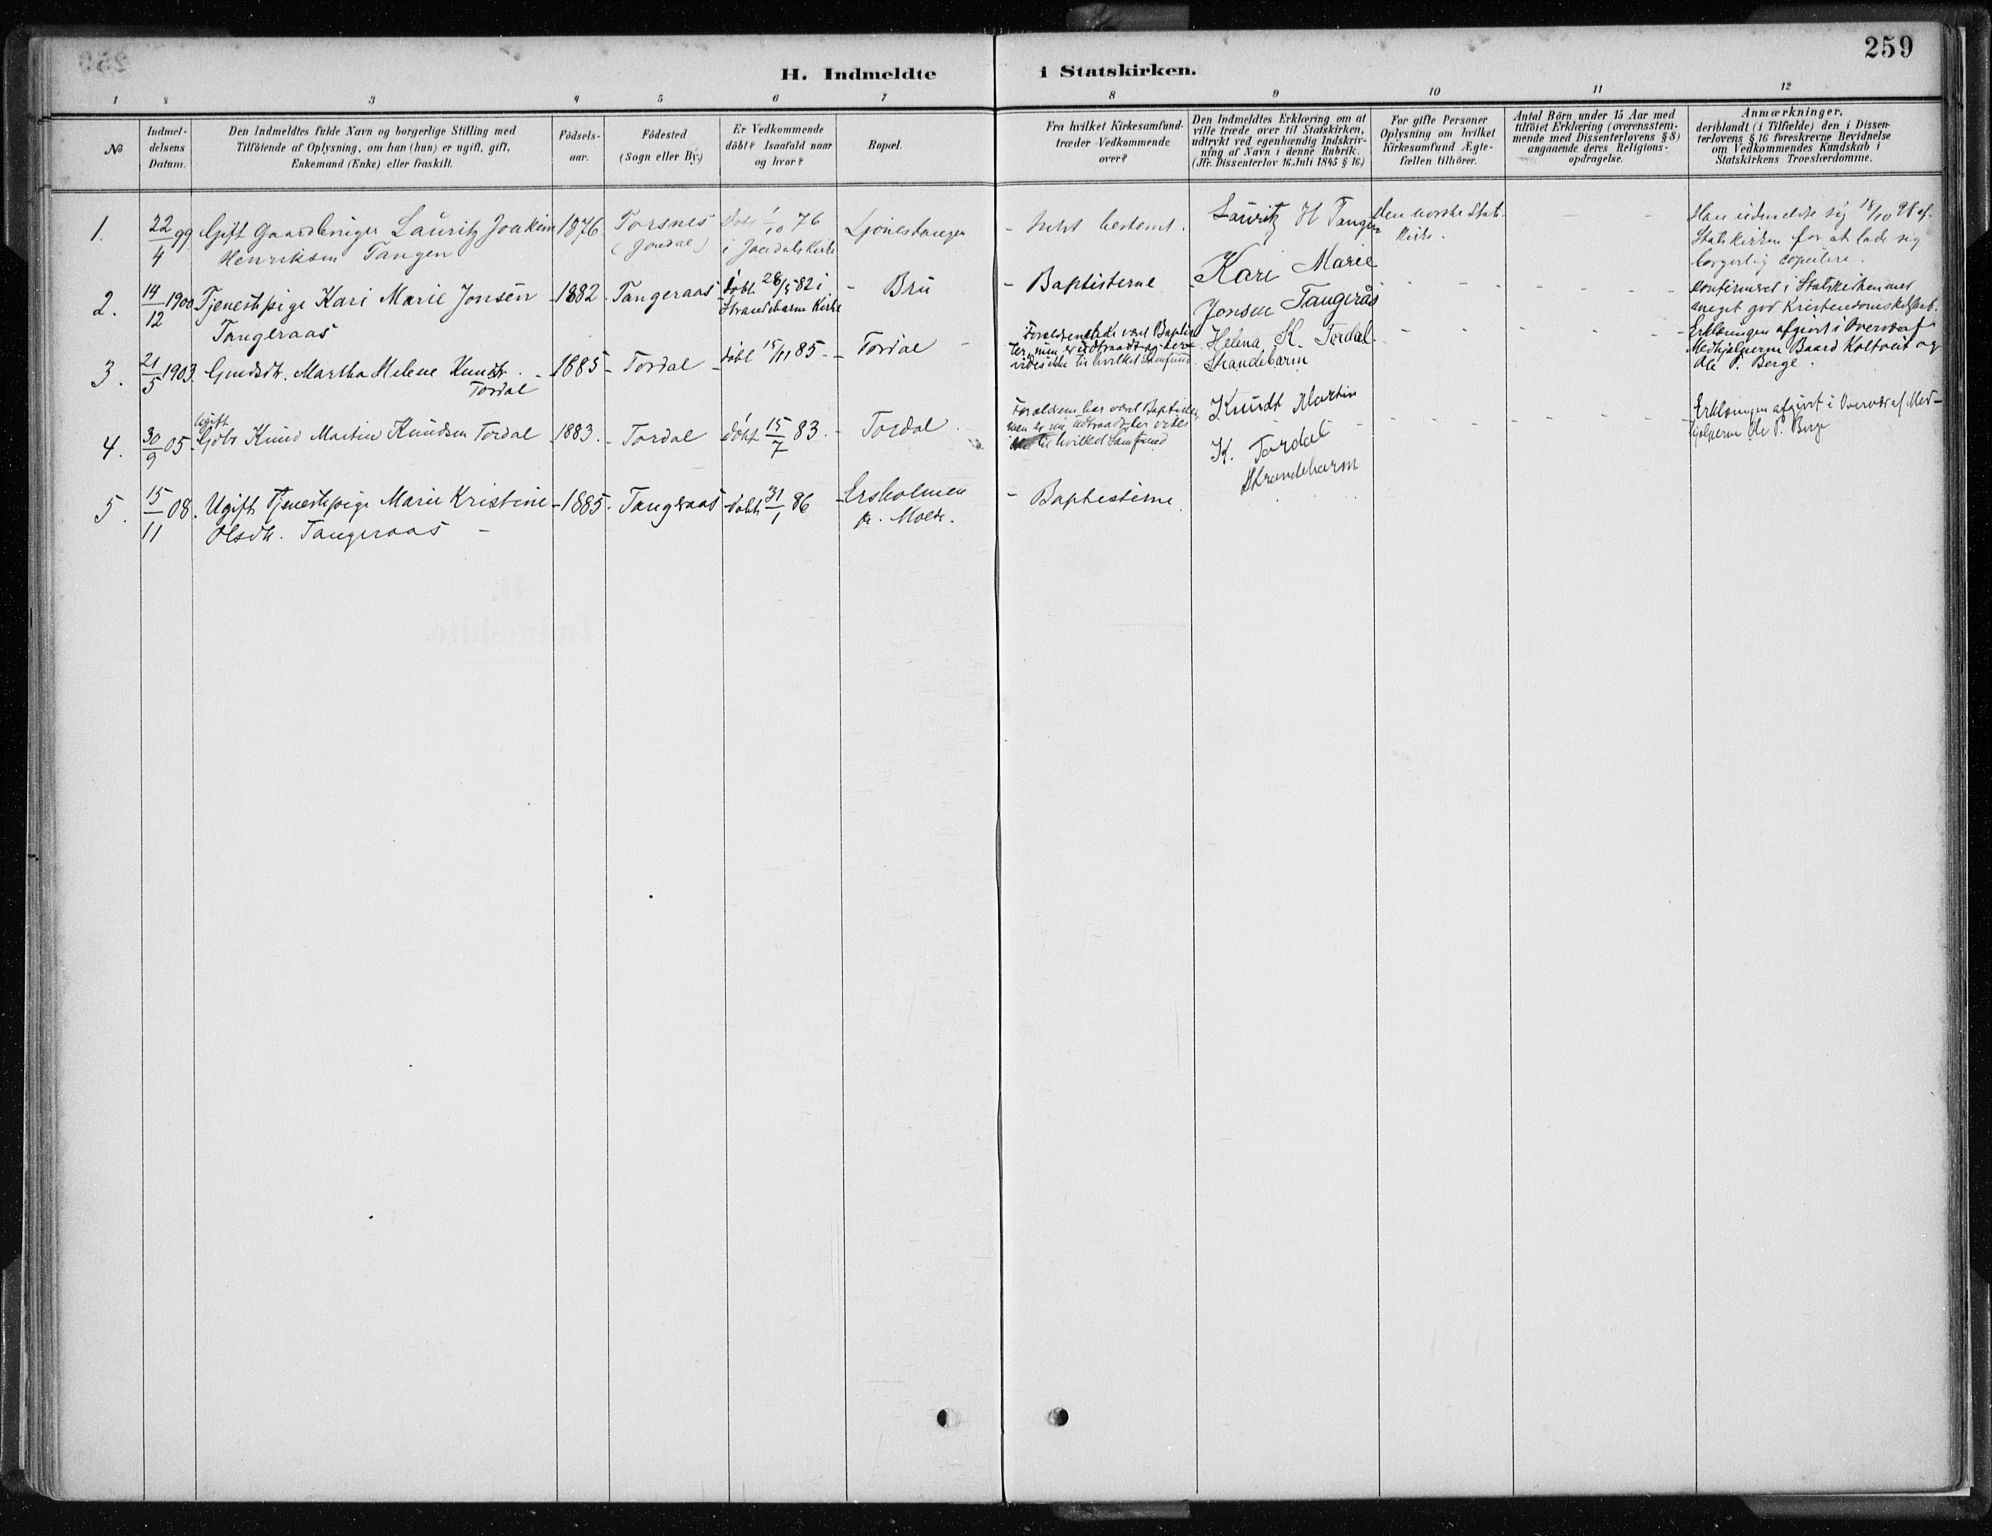 259
H. Indmeldte i Statskirken.
1 2 3 4 5 6 7 8 9 10 11 12
No
Indmel-
delsens
Datum.
Den Indmeldtes fulde Navn og borgerlige Stilling med
Tilföiende af Oplysning, om han (hun) er ugift, gift,
Enkemand (Enke) eller fraskilt.
Födsels-
aar.
Födested
(Sogn eller By.)
Er Vedkommende
döbt? Isaafald naar
og hvor?
Bopæl.
Fra hvilket Kirkesamfund
træder Vedkommende
over?
Den Indmeldtes Erklæring om at
ville træde over til Statskirken,
udtrykt ved egenhændig Indskriv-
ning af Navn i denne Rubrik.
(Jfr. Dissenterlov 16 Juli 1845 § 16.)
For gifte Personer
Oplysning om hvilket
Kirkesamfund Ægte-
fællen tilhörer.
Antal Börn under 15 Aar med
tilföiet Erklæring (overensstem-
mende med Dissenterlovens § 8)
angaaende deres Religions-
opdragelse.
Anmærkninger,
deriblandt (i Tilfælde) den i Dissen-
terlovens § 16 foreskrevne Bevidnelse
om Vedkommendes Kundskab i
Statskirkens Troeslærdomme.
1.
22/4 99
Gift Gaardbruger Lauritz Joakim
Henriksen Tangen
1876
Torsnes
(Jondal)
döbt 1/10 76
i Jondals Kirke
Ljonestangen
- Intet bestemt.
Lauritz H Tangen
Den norske Stats-
kirke.
Han udmeldte sig 18/10 98 af
Statskirken for at lade sig
borgerlig copulere.
2.
14/12 1900
Tjenestepige Kari Marie Jonsen
Tangeraas
- 1882
- Tangeraas
döbt 28/5 82 i
Strandebarm Kirke
- Bru
- Baptisterne
Kari Marie
Jonsen Tangirås
Konfirmeret i Statskirken med
meget god Kristendomskundskab.
3.
21/5 1903
Gmdsdt. Martha Helene Knudsdt.
Tordal
- 1885
- Tordal
döbt 15/11 85
- Tordal
Forældrene har været Baptis-
ter, men er udtraadt og
vides ikke til hvilket Samfund.
Helena K. Tordal
Strandebarm
Erklæringen afgivet i Overvær af
Medhjelperne Baard Koltveit og
Ole P. Berge.
4.
30/9 05
Ugift
Knud Martin Knudsen Tordal
- 1883.
- Tordal
döbt 15/7 83.
- Tordal
Forældrene har været Baptister,
men er nu udtraadt, vides
ikke til hvilket Samfund
Knudt Martin
K. Tordal
Strandebarm
Erklæringen afgivet i Overvær af Med-
hjelperne Ole P. Berge
5.
15/11 08.
Ugift Tjenestepige Marie Kristine
Olsdt. Tangeraas
- 1885
- Tangeraas
döbt 31/1 86
- Ersholmen
pr. Molde.
- Baptisterne